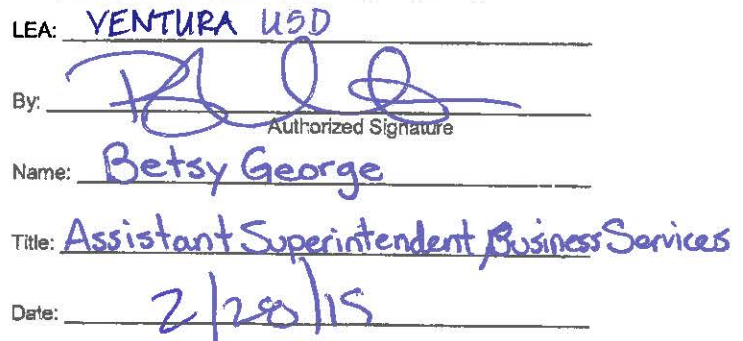 LEA: VENTURA USD
By:
Authorized Signature
Name: Betsy George
Title: Assistant Superintendent Business Services
Date: 2/28/15